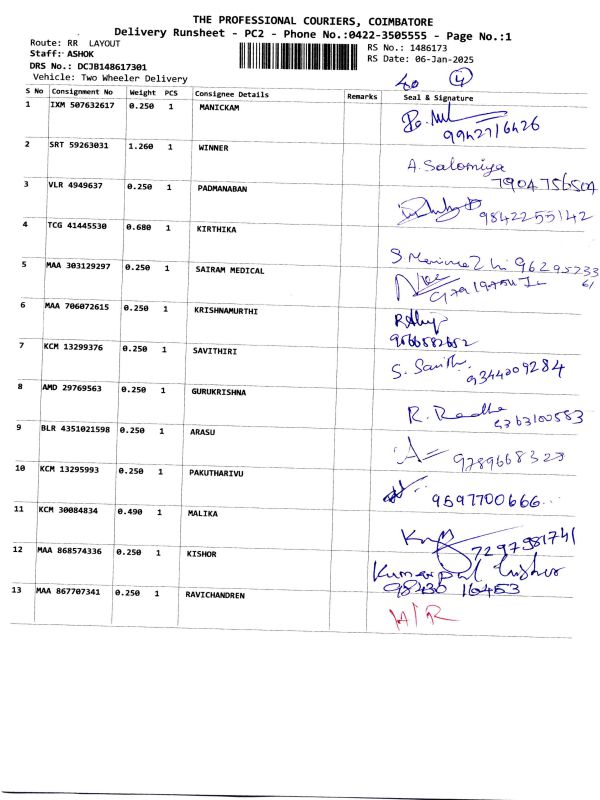 THE PROFESSIONAL COURIERS, COIMBATORE
Delivery Runsheet - PC2 - Phone No.:0422-3505555 - Page No.:1
Route: RR LAYOUT RS No.: 1486173
Staff: ASHOK RS Date: 06-Jan-2025
DRS No.: DCJB148617301
Vehicle: Two Wheeler Delivery 4
S No Consignment No Weight PCS Consignee Details Remarks Seal & Signature
1 IXM 507632617 0.250 1 MANICKAM
9942716426
2 SRT 59263031 1.260 1 WINNER A. Salomiya
7904756504
3 VLR 4949637 0.250 1 PADMANABAN
9842255142
4 TCG 41445530 0.680 1 KIRTHIKA
5 MAA 303129297 0.250 1 SAIRAM MEDICAL
6 MAA 706072615 0.250 1 KRISHNAMURTHI
9566582652
7 KCM 13299376 0.250 1 SAVITHIRI S. Savithi
9344009284
8 AMD 29769563 0.250 1 GURUKRISHNA R. Radha
9363100583
9 BLR 4351021598 0.250 1 ARASU
9789668323
10 KCM 13295993 0.250 1 PAKUTHARIVU
9597700666
11 KCM 30084834 0.490 1 MALIKA
7297981741
12 MAA 868574336 0.250 1 KISHOR Kumarpal
98430 16453
13 MAA 867707341 0.250 1 RAVICHANDREN H/R